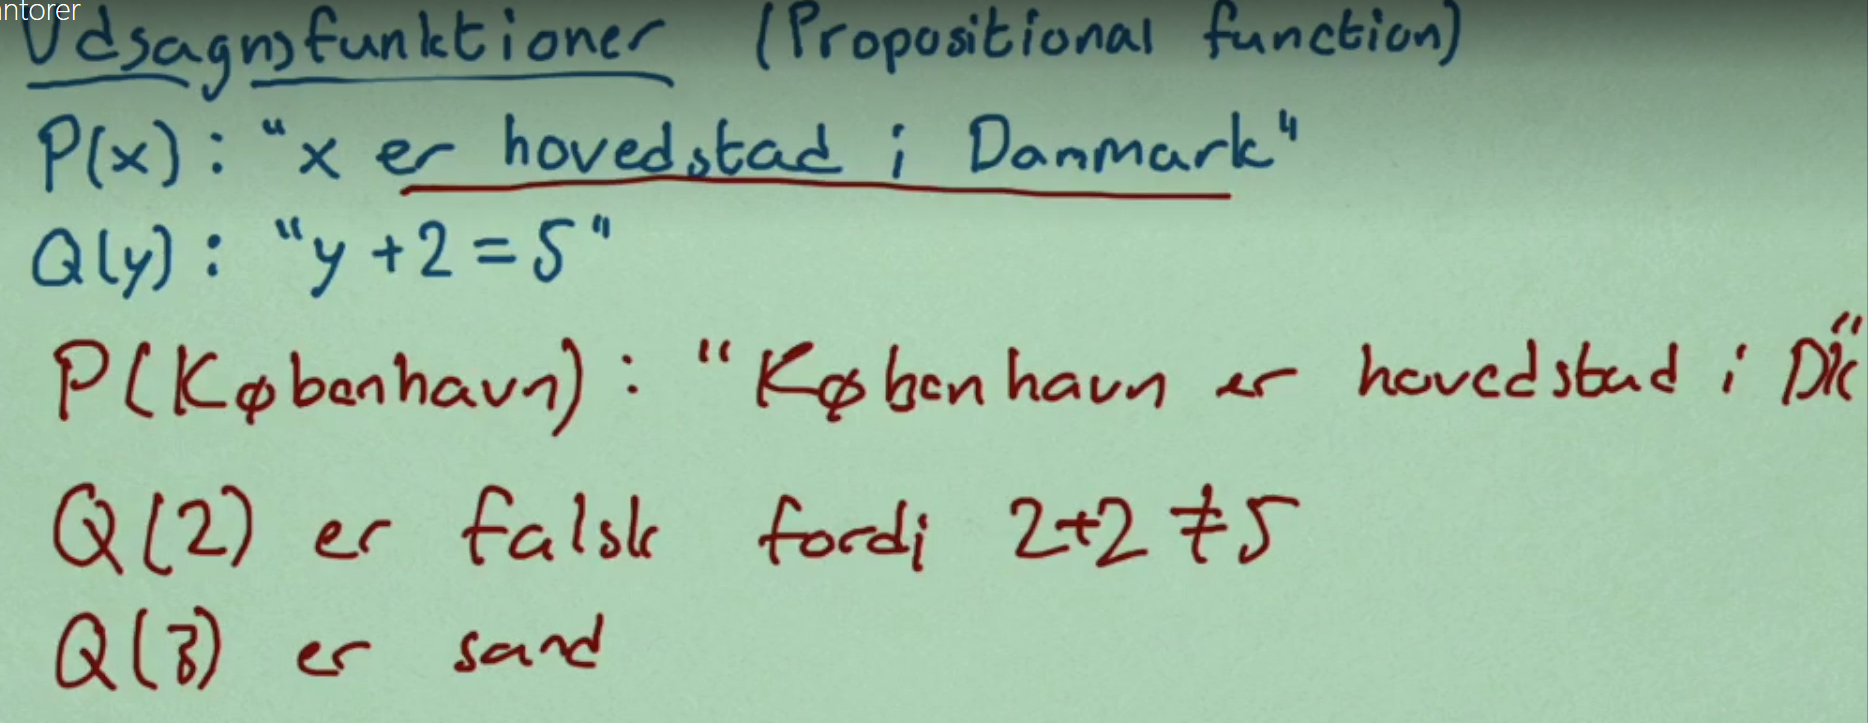 ntorer
Udsagnsfunktioner (Propositional function)
P(x) : "x er hovedstad i Danmark"
Q(y) : "y + 2 = 5"
P(København) : "København er hovedstad i DK"
Q(2) er falsk fordi 2+2 ≠ 5
Q(3) er sand